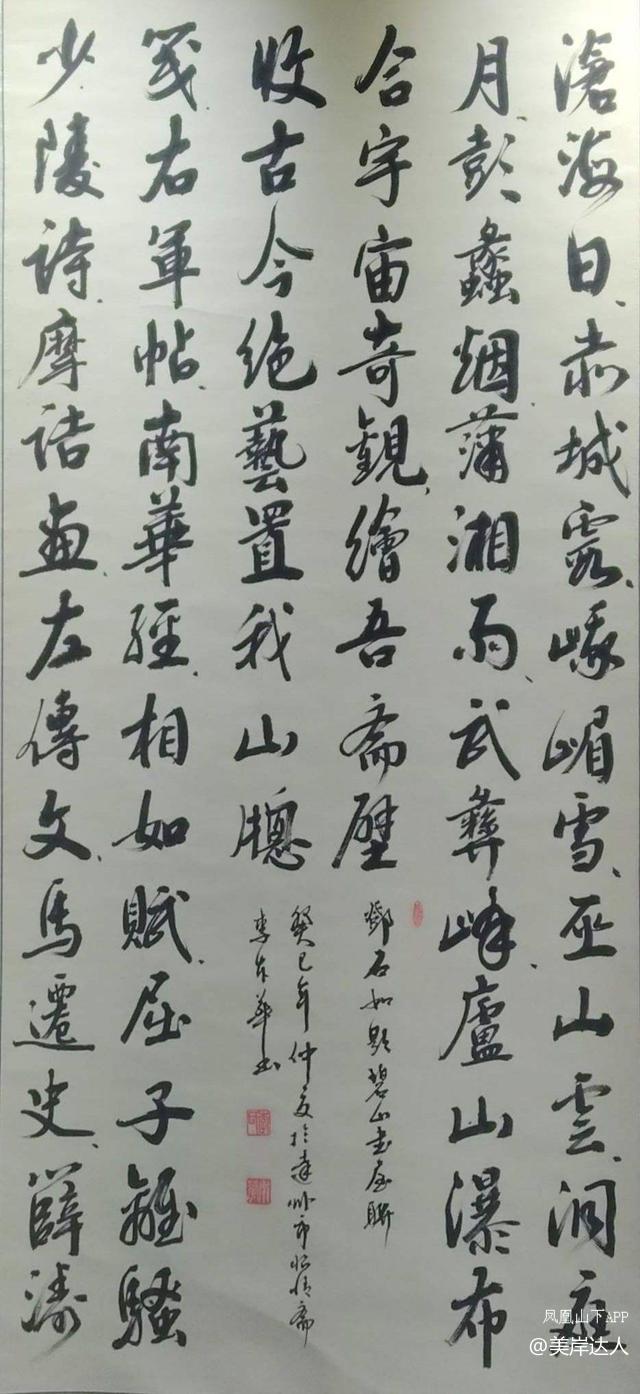 滄海日、赤城霞、峨嵋雪、巫山雲、洞庭
月、彭蠡烟、瀟湘雨、武彝峰、廬山瀑布
合宇宙奇觀、繪吾斋壁
少陵诗、摩诘画、左傳文、馬遷史、薛濤
笺、右軍帖、南華經、相如賦、屈子離騷
收古今绝藝置我山牕
鄧石如題碧山书屋聯
癸巳年仲夏於達州市怡情斋
凤凰山下APP
@美岸达人